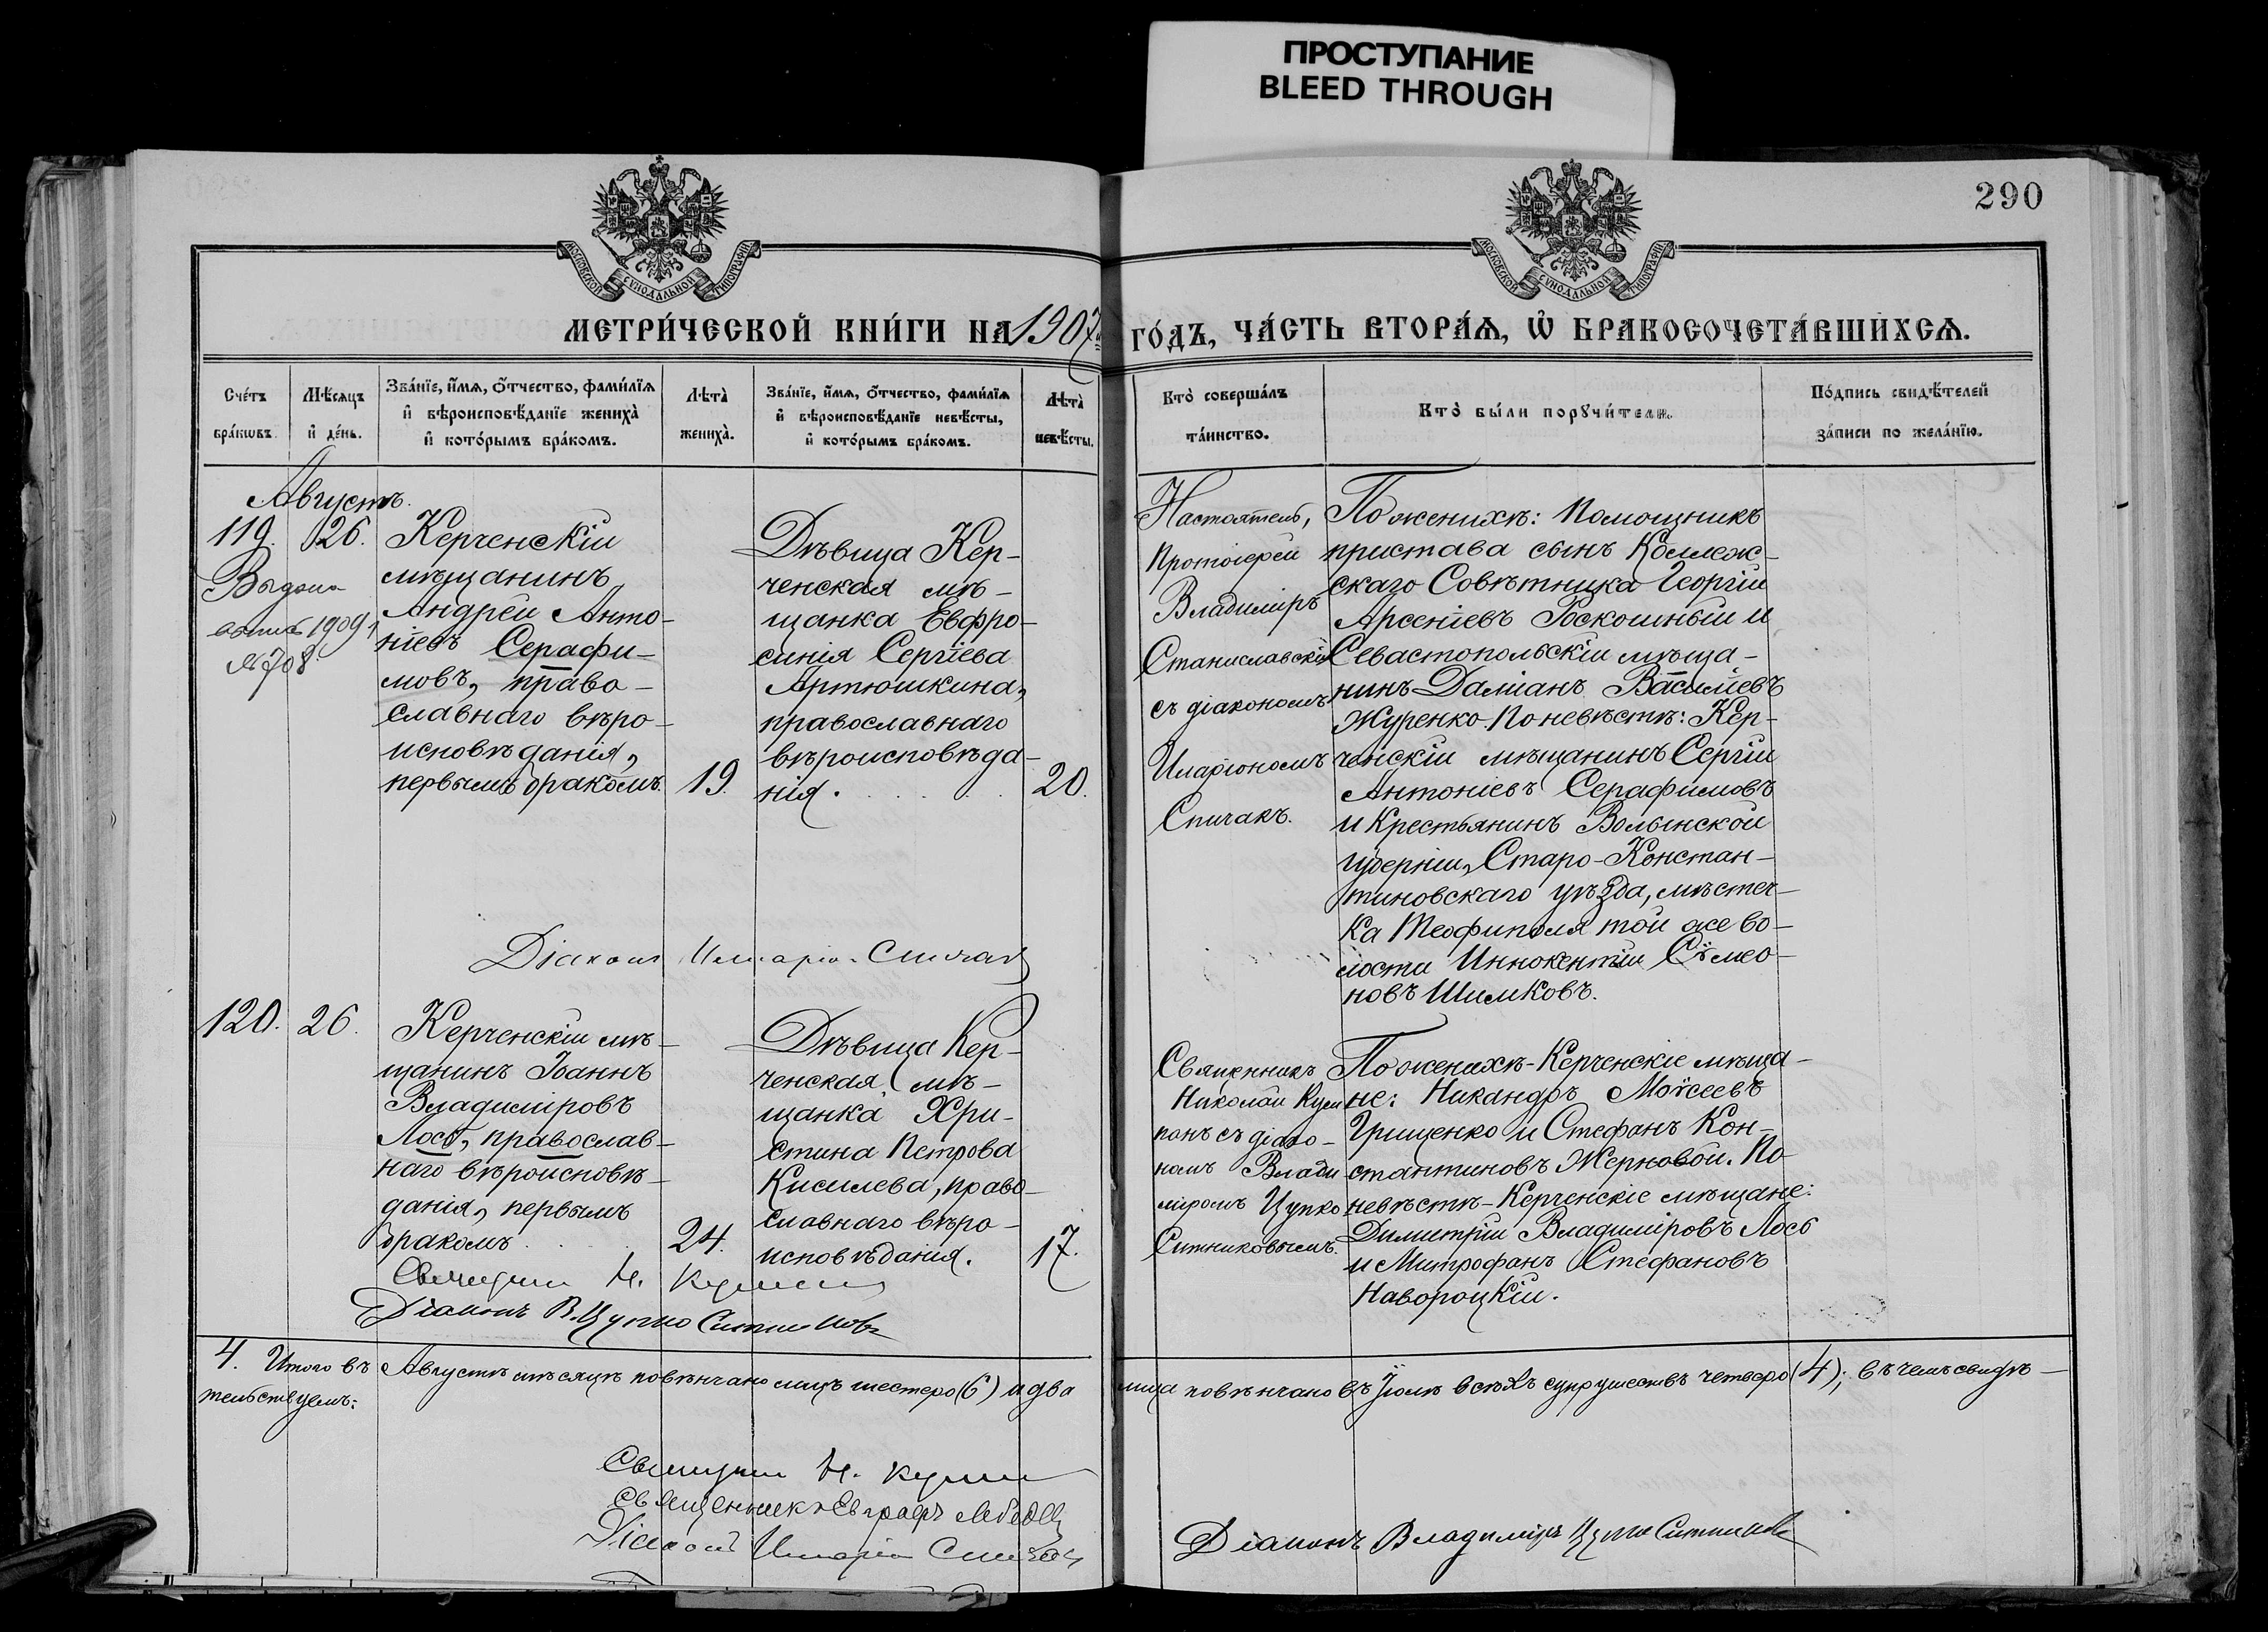 ПРОСТУПАНИЕ
BLEED THROUGH
290
МОСКОВСКОЙ СУНОДАЛЬНОЙ ТИПОГРАФІИ
МОСКОВСКОЙ СУНОДАЛЬНОЙ ТИПОГРАФІИ
МЕТРИ́ЧЕСКОЙ КНИ́ГИ НА 1907й ГО́ДЪ, ЧА́СТЬ ВТОРА́Ѧ, Ѡ҆ БРАКОСОЧЕТА́ВШИХСѦ.
Сче́тъ
бра́кѡвъ.
Мѣ́сѧцъ
и҆ де́нь.
Зва́нїе, и҆́мѧ, ѻ҆́тчество, фами́лїѧ
и҆ вѣроисповѣ́данїе жениха̀
и҆ кото́рымъ бра́комъ.
Лѣта̀
жениха̀.
Зва́нїе, и҆́мѧ, ѻ҆́тчество, фами́лїѧ
и҆ вѣроисповѣ́данїе невѣ́сты,
и҆ кото́рымъ бра́комъ.
Лѣта̀
невѣ́сты.
Кто̀ соверша́лъ
та́инство.
Кто̀ бы́ли порꙋчи́тели.
По́дпись свидѣ́телей
за́писи по жела́нїю.
Августъ.
119. 26.
Выдана
выпись 1909 г
№ 708.
Керченскій
мѣщанинъ
Андрей Анто-
ніевъ Серафи-
мовъ, право-
славнаго вѣро-
исповѣданія,
первымъ бракомъ. 19.
Дѣвица Кер-
ченская мѣ-
щанка Евфро-
синія Сергіева
Артюшкина,
православнаго
вѣроисповѣда-
нія. 20.
Настоятель,
Протоіерей
Владиміръ
Станиславскій
съ діакономъ
Иларіономъ
Спичакъ.
По женихѣ: Помощникъ
пристава сынъ Коллеж-
скаго Совѣтника Георгій
Арсеніевъ Роскошный и
Севастопольскій мѣща-
нинъ Даміанъ Василіевъ
Журенко. По невѣстѣ: Кер-
ченскій мѣщанинъ Сергій
Антоніевъ Серафимовъ
и Крестьянинъ Волынской
губерніи, Старо-Констан-
тиновскаго уѣзда, мѣстеч-
ка Теофиполя той же во-
лости Иннокентій Сѵмео-
новъ Шимковъ.
Діаконъ Иларіонъ Спичакъ
120. 26.
Керченскій мѣ-
щанинъ Іоаннъ
Владиміровъ
Лось, православ-
наго вѣроисповѣ-
данія, первымъ
бракомъ 24.
Дѣвица Кер-
ченская мѣ-
щанка Хри-
стина Петрова
Кисилева, право-
славнаго вѣро-
исповѣданія. 17.
Священникъ
Николай Кум
панъ съ діако-
номъ Влади
міромъ Цупко
Ситниковымъ.
По женихѣ-Керченскіе мѣща-
не: Никандръ Моѵсеевъ
Грищенко и Стефанъ Кон-
стантиновъ Жерновой. По
невѣстѣ-Керченскіе мѣщане:
Димитрій Владиміровъ Лось
и Митрофанъ Стефановъ
Навороцкій.
Священникъ Н. Кумпанъ
Діаконъ В. Цупко Ситниковъ
4. Итого въ Августѣ мѣсяцѣ повѣнчано лицъ шестеро (6) и два лица повѣнчано въ Іюлѣ всѣхъ супружествъ четверо (4); въ чемъ свидѣ-
тельствуемъ:
Священникъ Н. Кумпанъ
Священникъ Евграфъ Лебедевъ
Діаконъ Иларіонъ Спичакъ
Діаконъ Владиміръ Цупко Ситниковъ